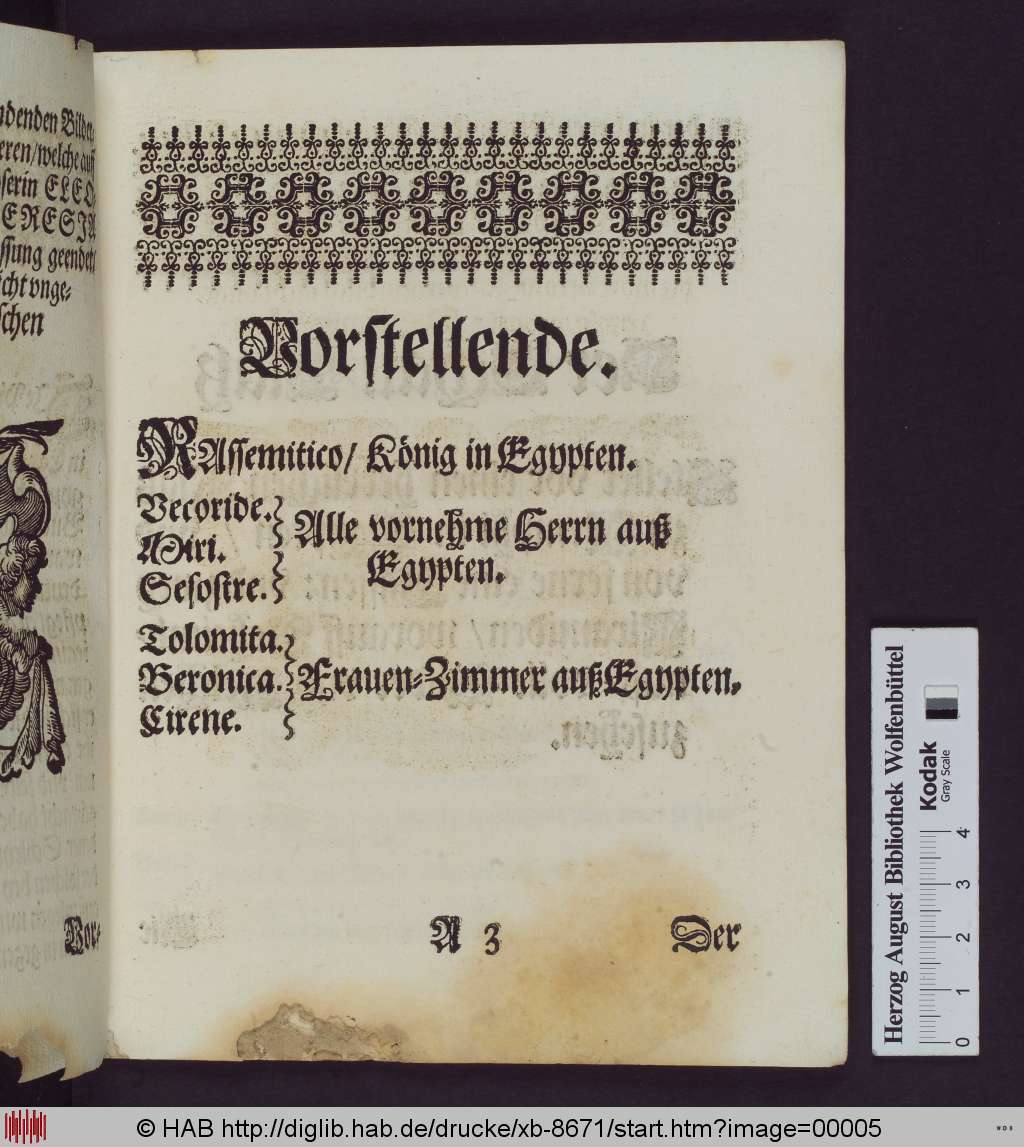 ndenden Bilder
eren/welche auß
serin ELEO
ERESIA
ssung geendet/
icht vnge-
schen
Vor-
Vorstellende.
RAssemitico/ König in Egypten.
Vecoride.
Miri.
Sesostre.
Alle vornehme Herrn auß
Egypten.
Tolomita.
Beronica.
Cirene.
Frauen-Zimmer auß Egypten.
A 3
Der
Herzog August Bibliothek Wolfenbüttel
Kodak
Gray Scale
0 1 2 3 4
© HAB http://diglib.hab.de/drucke/xb-8671/start.htm?image=00005